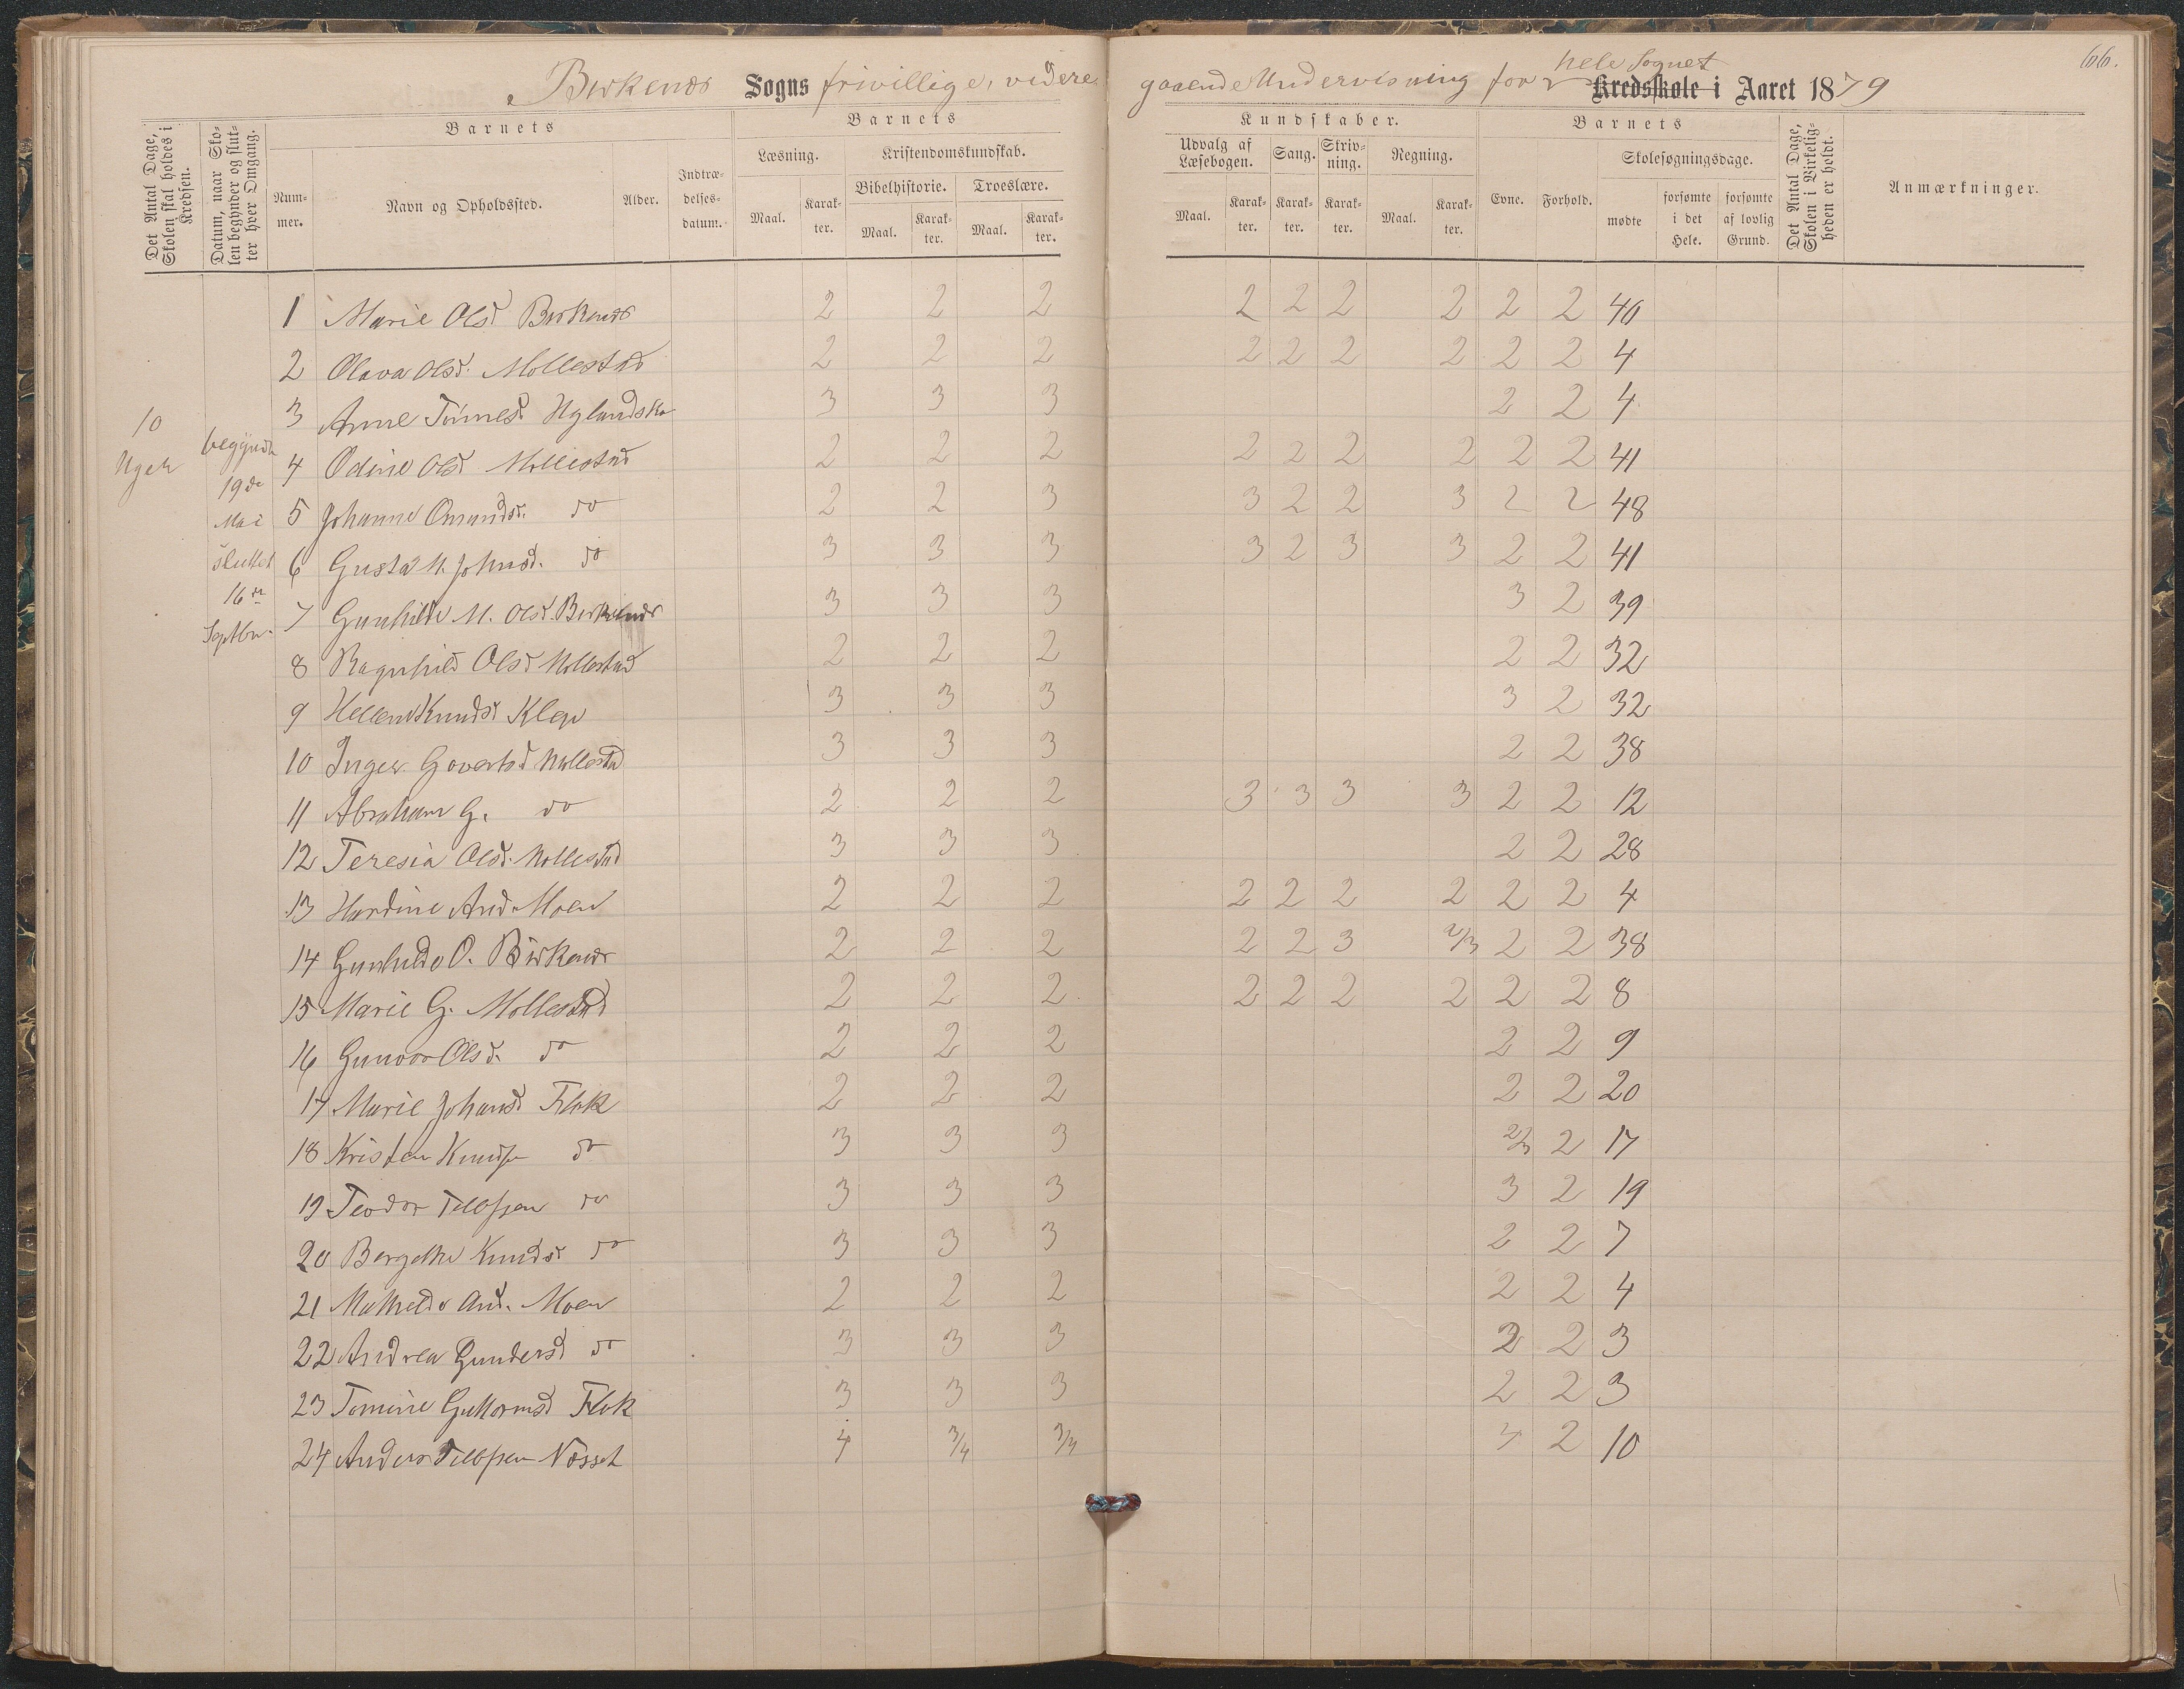 Birkenes Sogns frivillige, videregaaende Undervisning for hele Sognet Kredsskole i Aaret 1879
66.
Det Antal Dage, Skolen skal holdes i Kredsen.
Datum, naar Skolen begynder og slutter hver Omgang.
Barnets
Nummer.
Navn og Opholdssted.
Alder.
Indtrædelses-datum.
Barnets
Læsning.
Maal.
Karakter.
Kristendomskundskab.
Bibelhistorie.
Maal.
Karakter.
Troeslære.
Maal.
Karakter.
Kundskaber.
Udvalg af Læsebogen.
Maal.
Karakter.
Sang.
Karakter.
Skrivning.
Karakter.
Regning.
Maal.
Karakter.
Barnets
Evne.
Forhold.
Skolesøgningsdage.
mødte
forsømte i det Hele.
forsømte af lovlig Grund.
Det Antal Dage, Skolen i Virkeligheden er holdt.
Anmærkninger.
10
Uger
begyndte
19de
Mai
sluttet
16de
Septbr.
1 Marie Olsd Birkenes 2 2 2 2 2 2 2 2 2 40
2 Olava Olsd. Mollestad 2 2 2 2 2 2 2 2 2 4
3 Anne Tønnesd. 3 3 3 2 2 4
4 Odine Olsd Mollestad 2 2 2 2 2 2 2 2 2 41
5 Johanne Omundsd. do 2 2 3 3 2 2 3 2 2 48
6 Gusta M. Johnsd. do 3 3 3 3 2 3 3 2 2 41
7 Gunhilde M. Olsd. Birkenes 3 3 3 3 2 39
8 Ragnhild Olsd Mollestad 2 2 2 2 2 32
9 Hellene Knudsd Klep 3 3 3 3 2 32
10 Inger Govertsd Mollestad 3 3 3 2 2 38
11 Abraham G. do 2 2 2 3 3 3 3 2 2 12
12 Teresia Olsd. Mollestad 3 3 3 2 2 28
13 Hardine And. Moen 2 2 2 2 2 2 2 2 2 4
14 Gunhilde O. Birkenes 2 2 2 2 2 3 2/3 2 2 38
15 Marie G. Mollestad 2 2 2 2 2 2 2 2 2 8
16 Gunvor Olsd. do 2 2 2 2 2 9
17 Marie Johansd Flak 2 2 2 2 2 20
18 Kristen Knudsen do 3 3 3 2/3 2 17
19 Teodor Tellefsen do 3 3 3 3 2 19
20 Bergethe Knudsd do 3 3 3 2 2 7
21 Mathilde And. Moen 2 2 2 2 2 4
22 Andrea Gundersd do 3 3 3 2 2 3
23 Tomine Guttormsd Flak 3 3 3 2 2 3
24 Anders Tellefsen Næset 4 3/4 3/4 4 2 10